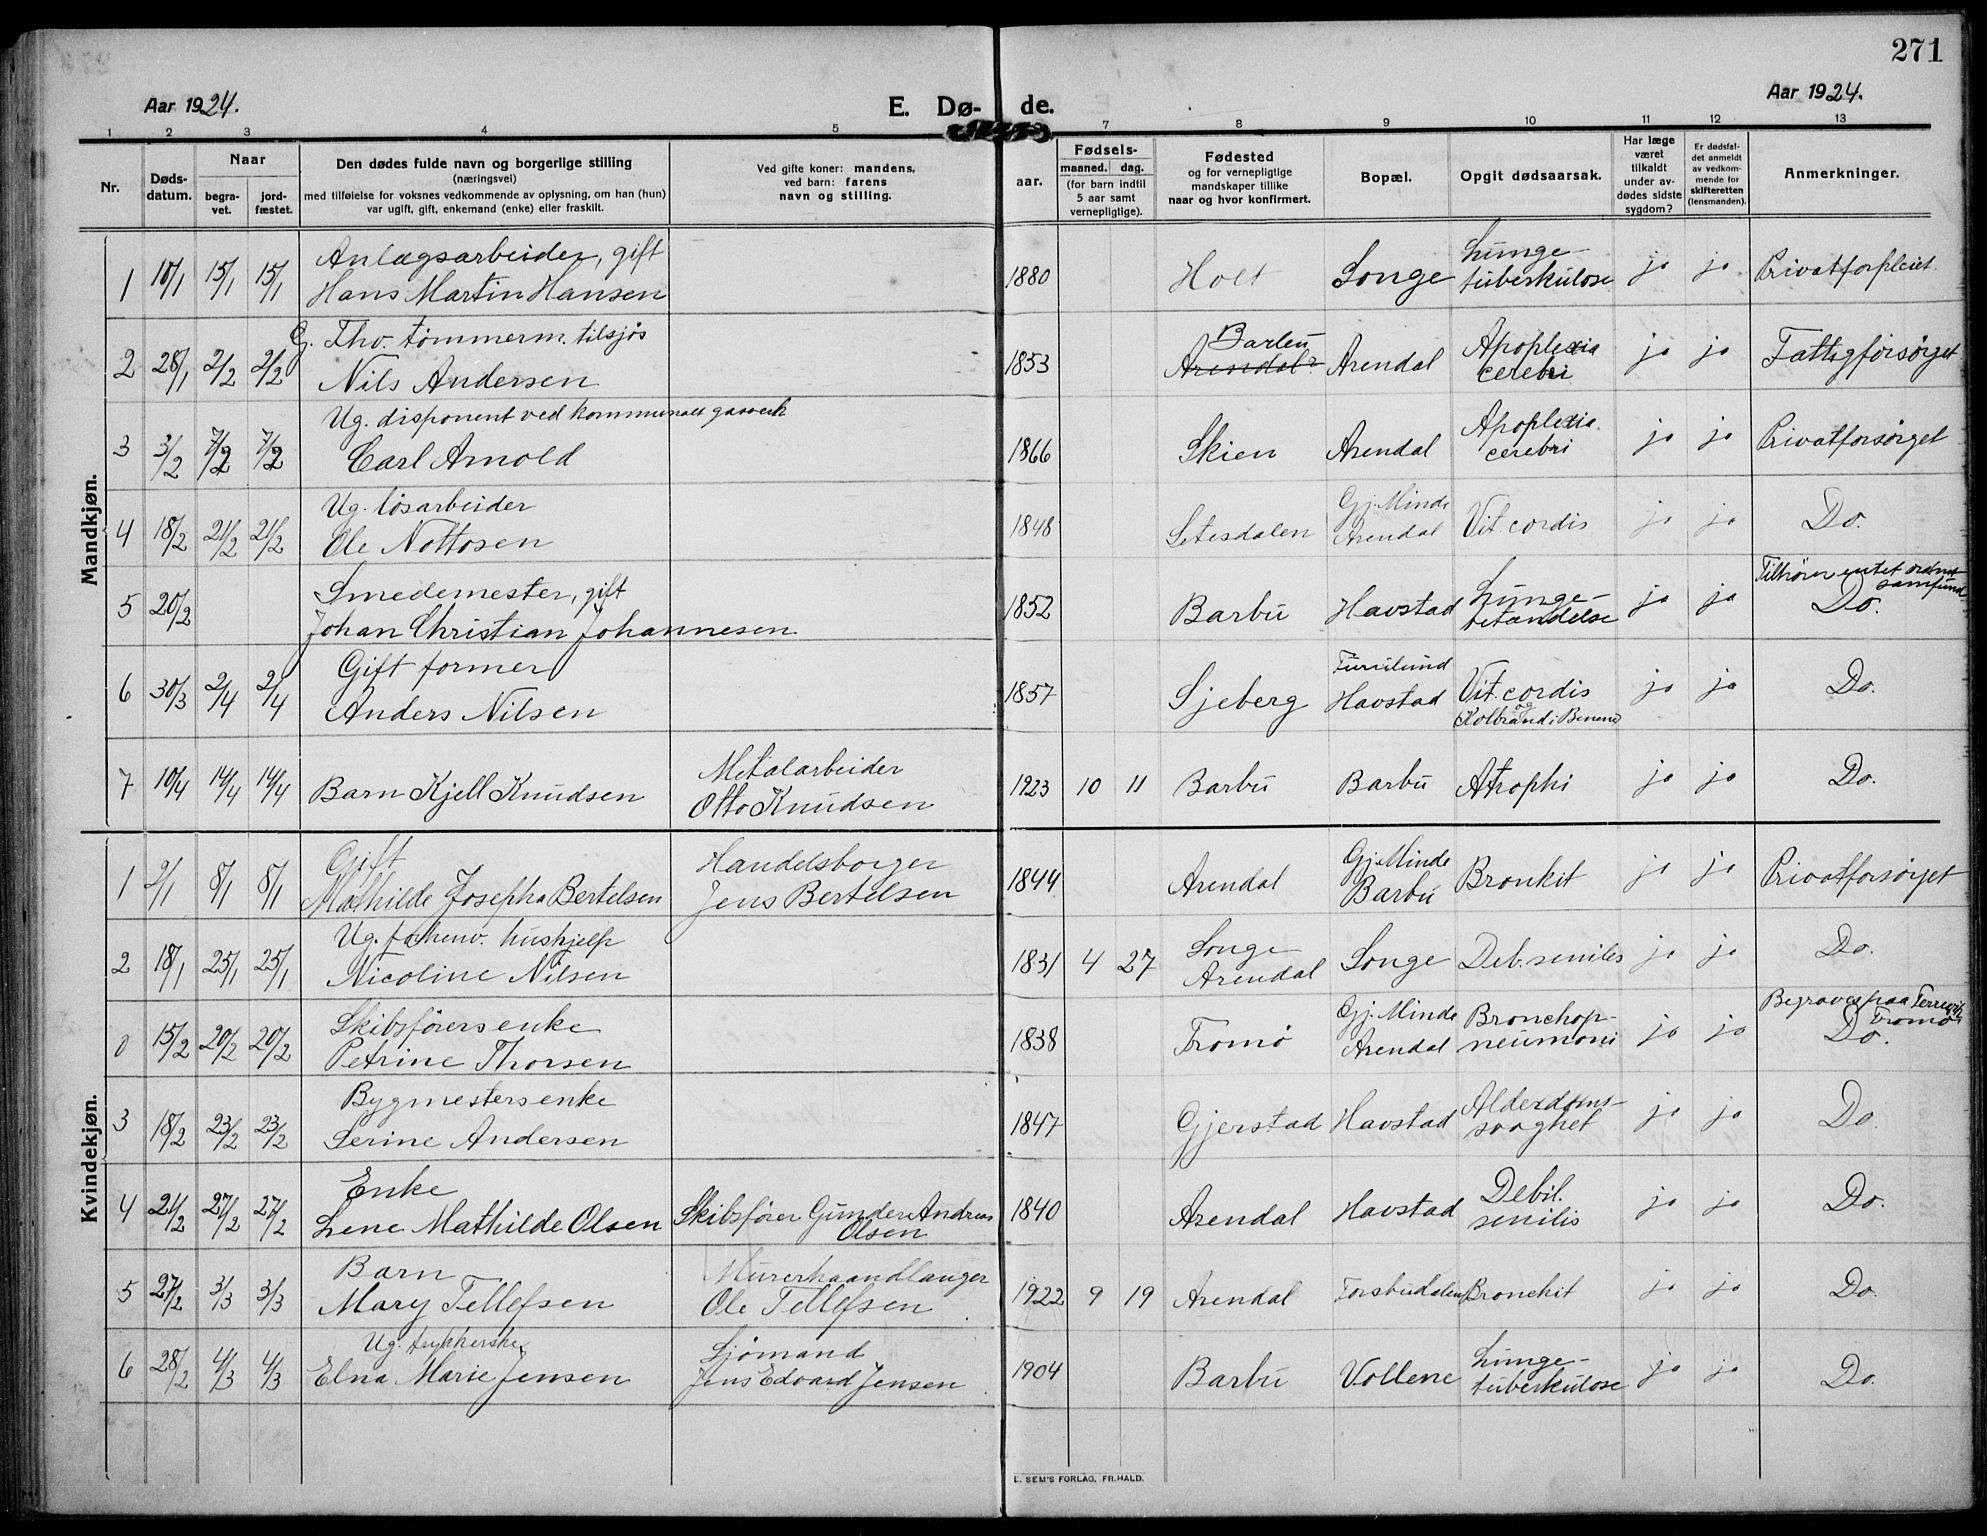 271
Aar 1924.
E. Dø- de.
Aar 1924.
1 2 3 4 5 7 8 9 10 11 12 13
Nr.
Døds-
datum.
Naar
begra-
vet.
jord-
fæstet.
Den dødes fulde navn og borgerlige stilling
(næringsvei)
med tilføielse for voksnes vedkommende av oplysning, om han (hun)
var ugift, gift, enkemand (enke) eller fraskilt.
Ved gifte koner: mandens,
ved barn: farens
navn og stilling.
aar.
Fødsels-
maaned. dag.
(for barn indtil
5 aar samt
vernepligtige).
Fødested
og for vernepligtige
mandskaper tillike
naar og hvor konfirmert.
Bopæl.
Opgit dødsaarsak.
Har læge
været
tilkaldt
under av-
dødes sidste
sygdom?
Er dødsfal-
det anmeldt
av vedkom-
mende for
skifteretten
(lensmanden).
Anmerkninger.
Mandkjøn.
Anlægsarbeider, gift
1 10/1 15/1 15/1 Hans Martin Hansen 1880 Holt Songe Lunge-
tuberkulose ja ja Privatforpleiet.
G. Fhv. tømmerm. tilsjøs
2 28/1 2/2 2/2 Nils Andersen 1853 Barbu
Arendal? Arendal Apoplexia
cerebri ja ja Fattigforsørget
Ug. disponent ved kommunalt gasverk
3 3/2 7/2 7/2 Carl Arnold 1866 Skien Arendal Apoplexia
cerebri ja ja Privatforsørget
Ug. løsarbeider
4 18/2 21/2 21/2 Ole Nottosen 1848 Setesdalen Gj. Minde
Arendal Vit. cordis ja ja Do.
Smedemester, gift
5 20/2 Johan Christian Johannesen 1852 Barbu Havstad Lunge-
betændelse ja ja Tilhører intet ordnet
samfund
Do.
Gift former
6 30/3 2/4 2/4 Anders Nilsen 1857 Sjeberg Havstad Vit. cordis
og
Kolbrand i Benene ja ja Do.
7 10/4 14/4 14/4 Barn Kjell Knudsen Metalarbeider
Otto Knudsen 1923 10 11 Barbu Barbu Atrophi ja ja Do.
Kvindekjøn.
Gift
1 2/1 8/1 8/1 Mathilde Josepha Bertelsen Handelsborger
Jens Bertelsen 1844 Arendal Gj. Minde
Barbu Bronkit ja ja Privatforsørget
Ug. forhenv. hushjelp
2 18/1 25/1 25/1 Nicoline Nilsen 1831 4 27 Songe
Arendal Songe Deb. seniles ja ja Do.
Skibsførersenke
0 15/2 20/2 20/2 Petrine Thorsen 1838 Tromø Gj. Minde
Arendal Bronchop-
neumoni ja ja Begraves paa
Tromø
Do.
Bygmestersenke
3 18/2 23/2 23/2 Serine Andersen 1847 Gjerstad Havstad Alderdoms-
svaghet ja ja Do.
Enke
4 21/2 27/2 27/2 Lene Mathilde Olsen Skibsfører Gunder Andreas
Olsen 1840 Arendal Havstad Debil.
senilis ja ja Do.
Barn
5 27/2 3/3 3/3 Mary Tellefsen Murerhaandlanger
Ole Tellefsen 1922 9 19 Arendal Forsbudalen Bronchit ja ja Do.
Ug. trykkerske
6 28/2 4/3 4/3 Elna Marie Jensen Sjømand
Jens Edvard Jensen 1904 Barbu Vollene Lunge-
tuberkulose ja ja Do.
E. SEM'S FORLAG, FR.HALD.